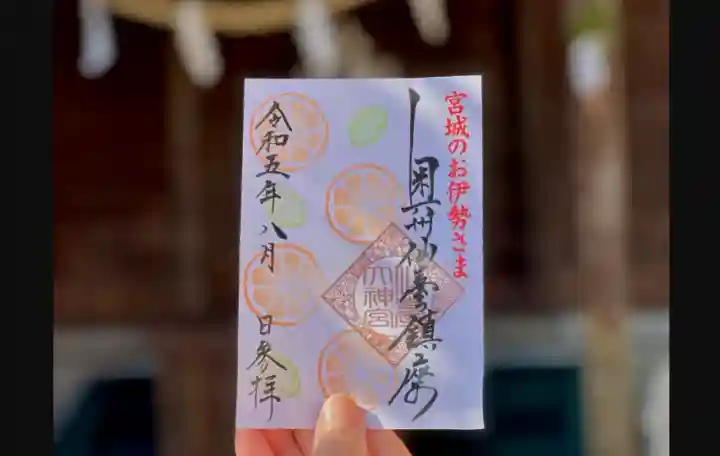 宮城のお伊勢さま
奥州仙臺鎮座
大神宮
令和五年八月 日参拝